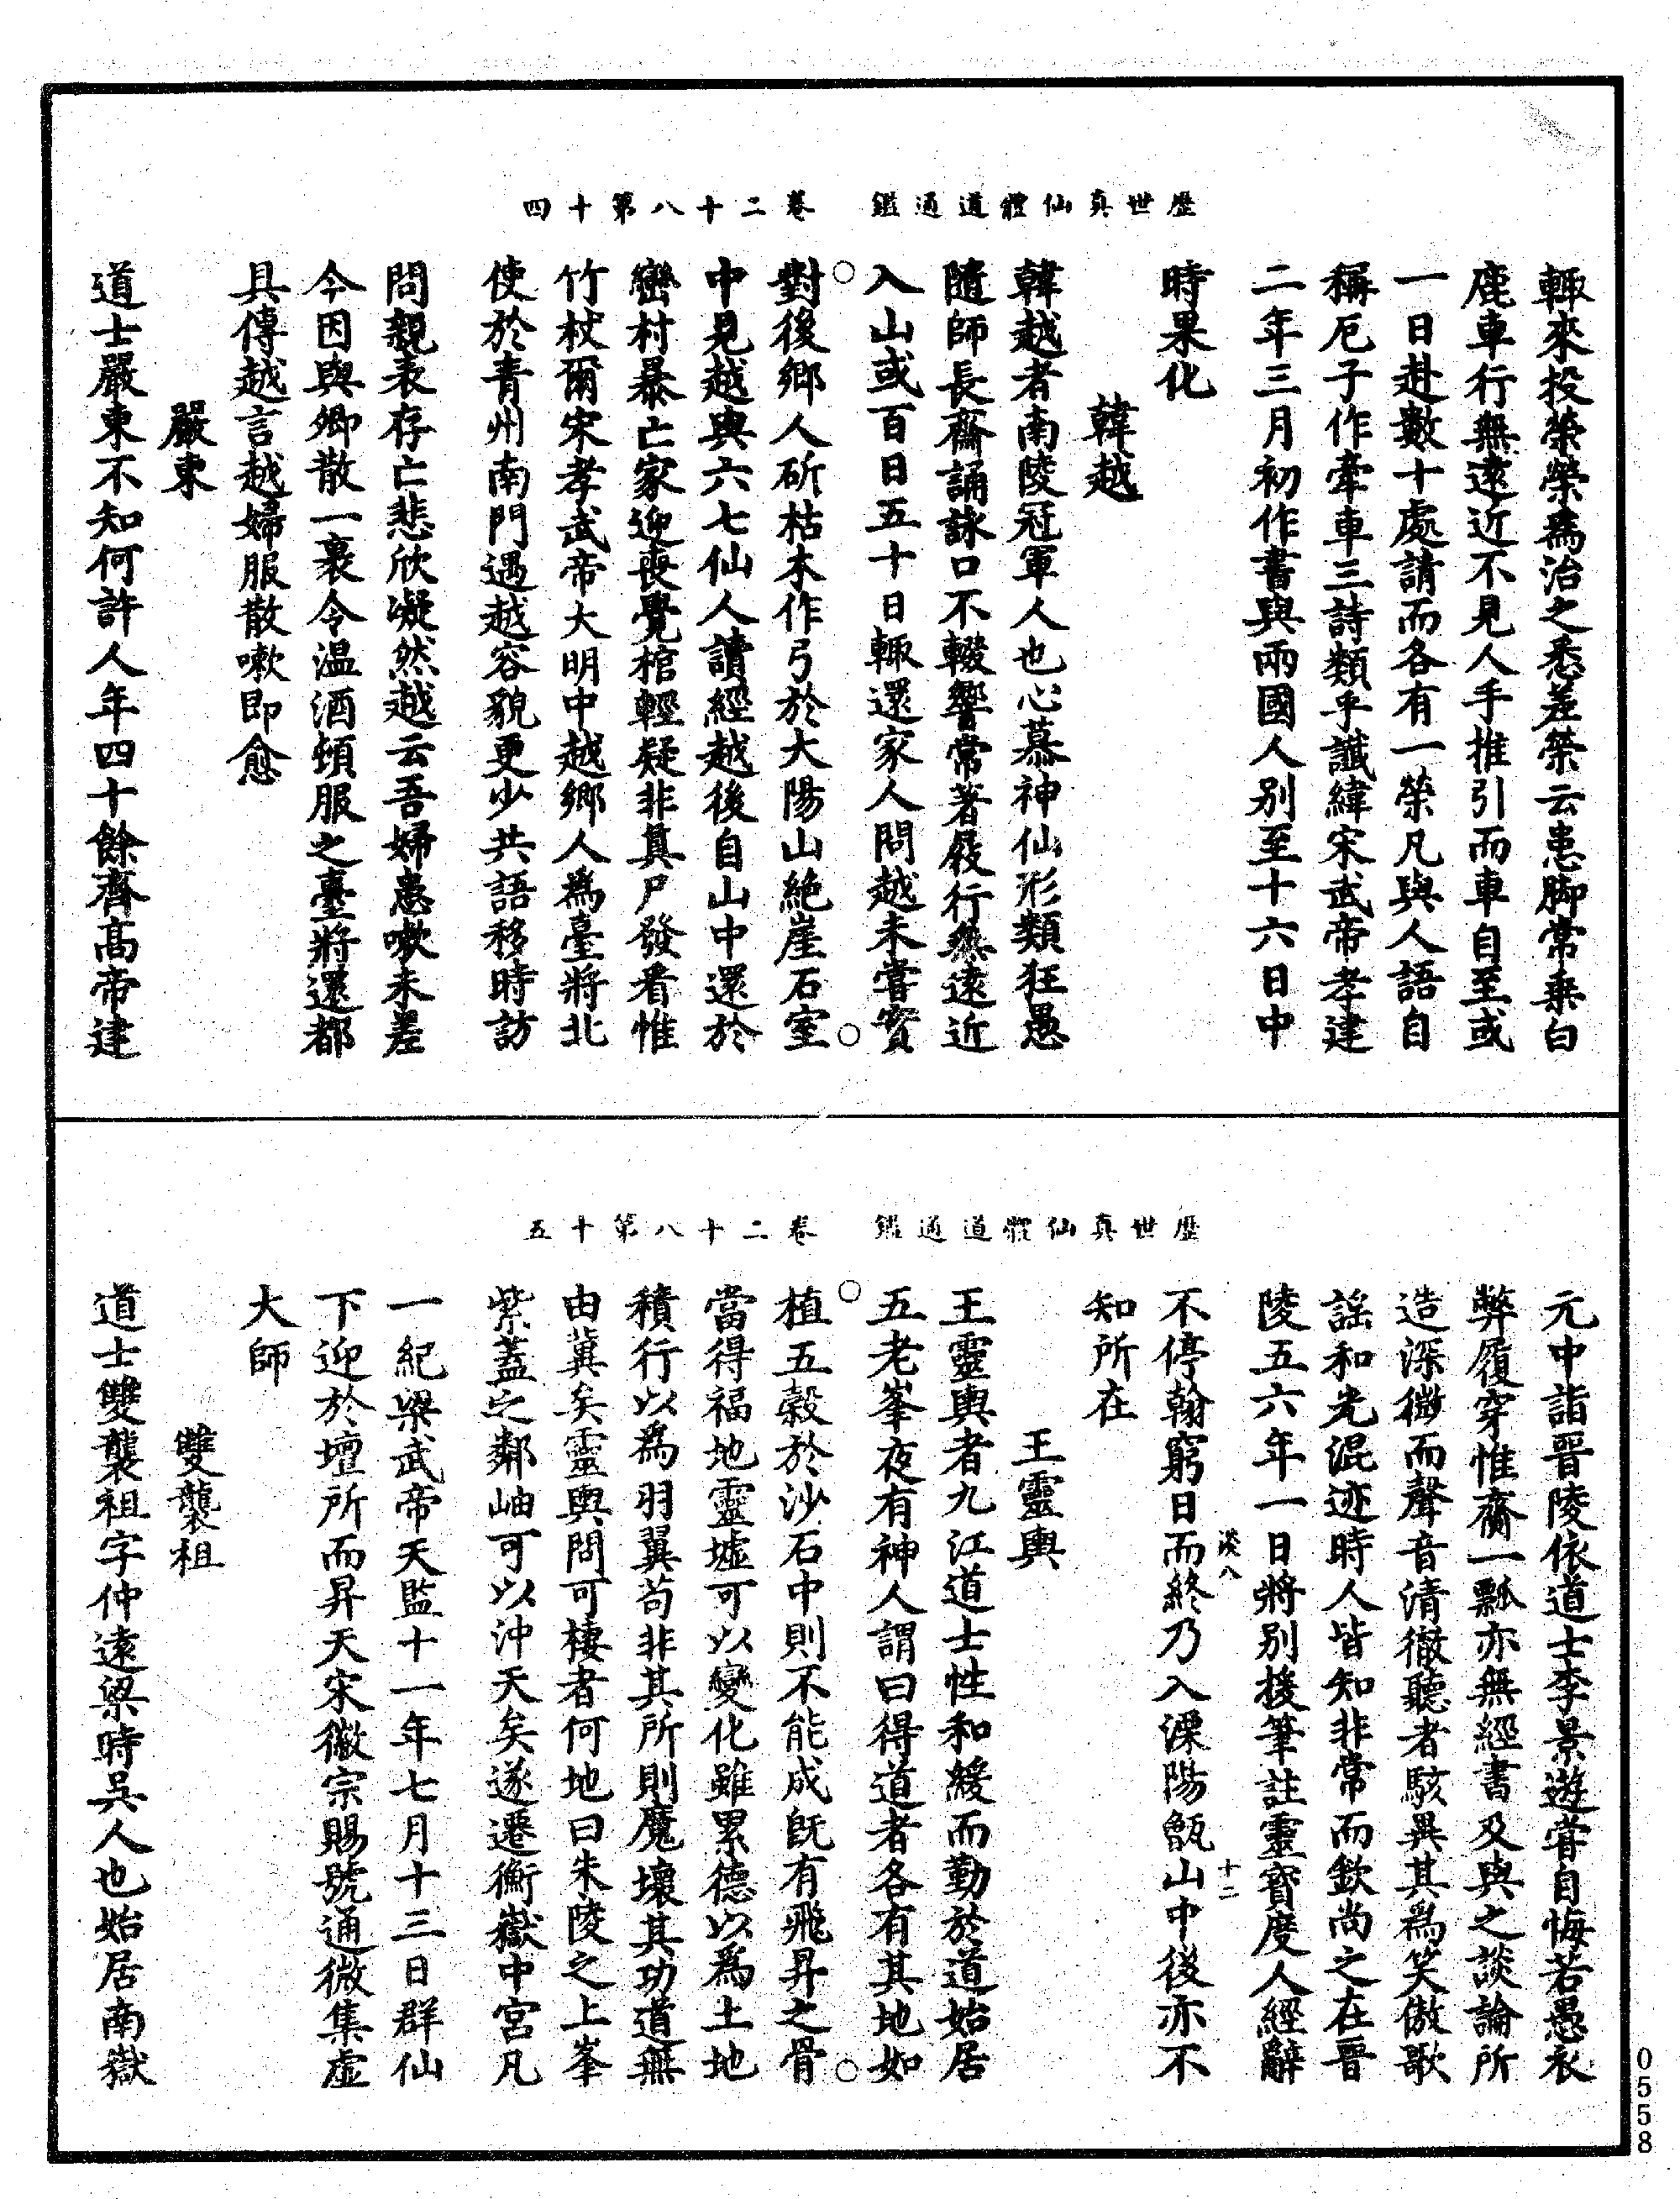 歷世真仙體道通鑑　卷二十八第十四
輙來投榮榮為治之悉差榮云患脚常乗白
鹿車行無遠近不見人手推引而車自至或
一日赴數十處請而各有一榮凡與人語自
稱厄子作牽車三詩類乎讖緯宋武帝孝建
二年三月初作書與兩國人别至十六日中
時果化
韓越
韓越者南陵冠軍人也心慕神仙形類狂愚
隨師長齋誦詠口不輟響常著屐行無遠近
入山或百日五十日輙還家人問越未嘗實
對後鄉人斫枯木作弓於大陽山絶崖石室
中見越與六七仙人讀經越後自山中還於
巒村暴亡家迎喪覺棺輕疑非真尸發看惟
竹杖爾宋孝武帝大明中越鄉人為臺將北
使於青州南門遇越容貌更少共語移時訪
問親表存亡悲欣凝然越云吾婦患嗽未差
今因與卿散一裹令温酒頓服之臺將還都
具傳越言越婦服散嗽即愈
嚴東
道士嚴東不知何許人年四十餘齊高帝建
歷世真仙體道通鑑　卷二十八第十五
元中詣晉陵依道士李景遊嘗自悔若愚衣
弊履穿惟齎一瓢亦無經書及與之談論所
造深微而聲音清徹聽者駭異其為笑傲歌
謡和光混迹時人皆知非常而欽尚之在晉
陵五六年一日將别援筆註靈寳度人經辭
不停翰窮日而終乃入溧陽甑山中後亦不
淡八　十二
知所在
王靈輿
王靈輿者九江道士性和緩而勤於道始居
五老峯夜有神人謂曰得道者各有其地如
植五穀於沙石中則不能成既有飛昇之骨
當得福地靈墟可以變化雖累德以為土地
積行以為羽翼苟非其所則魔壞其功道無
由冀矣靈輿問可棲者何地曰朱陵之上峯
紫蓋之鄰岫可以沖天矣遂遷衡嶽中宮凡
一紀梁武帝天監十一年七月十三日群仙
下迎於壇所而昇天宋徽宗賜號通微集虚
大師
雙襲祖
道士雙襲祖字仲遠梁時吴人也始居南嶽
0558